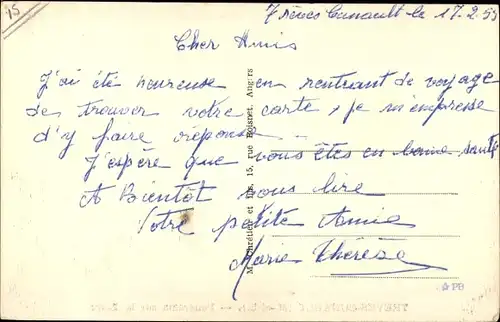 15
Trèves Cunault le 17.2.55
Cher Amis
J'ai été heureuse en rentrant de voyage
de trouver votre carte, je m'empresse
d'y faire réponse
J'espère que vous êtes en bonne santé
A Bientôt vous lire
Votre petite Amie
Marie Thérèse
et Fils, 15, rue Boisnet, Angers